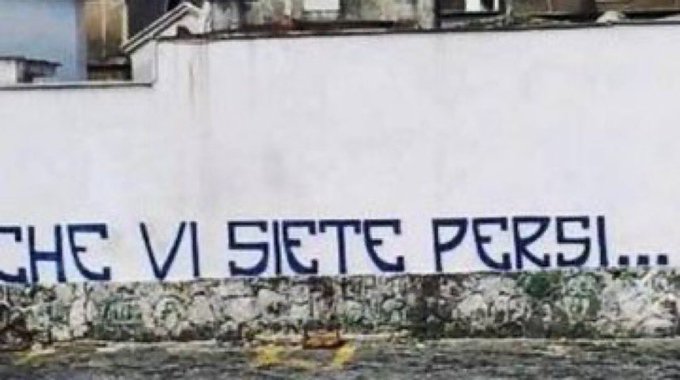 CHE VI SIETE PERSI...